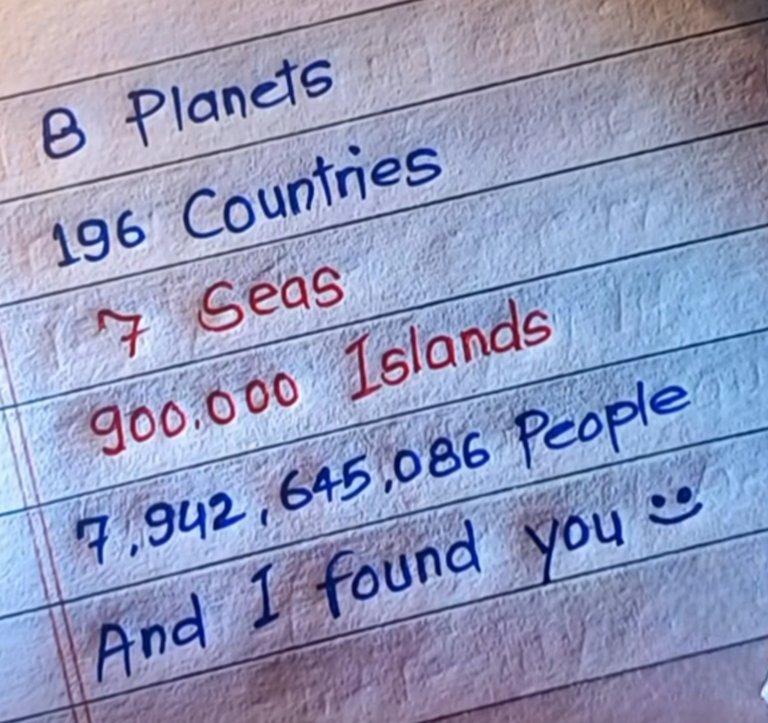 8 Planets
196 Countries
7 Seas
900.000 Islands
7,942,645,086 People
And I found you